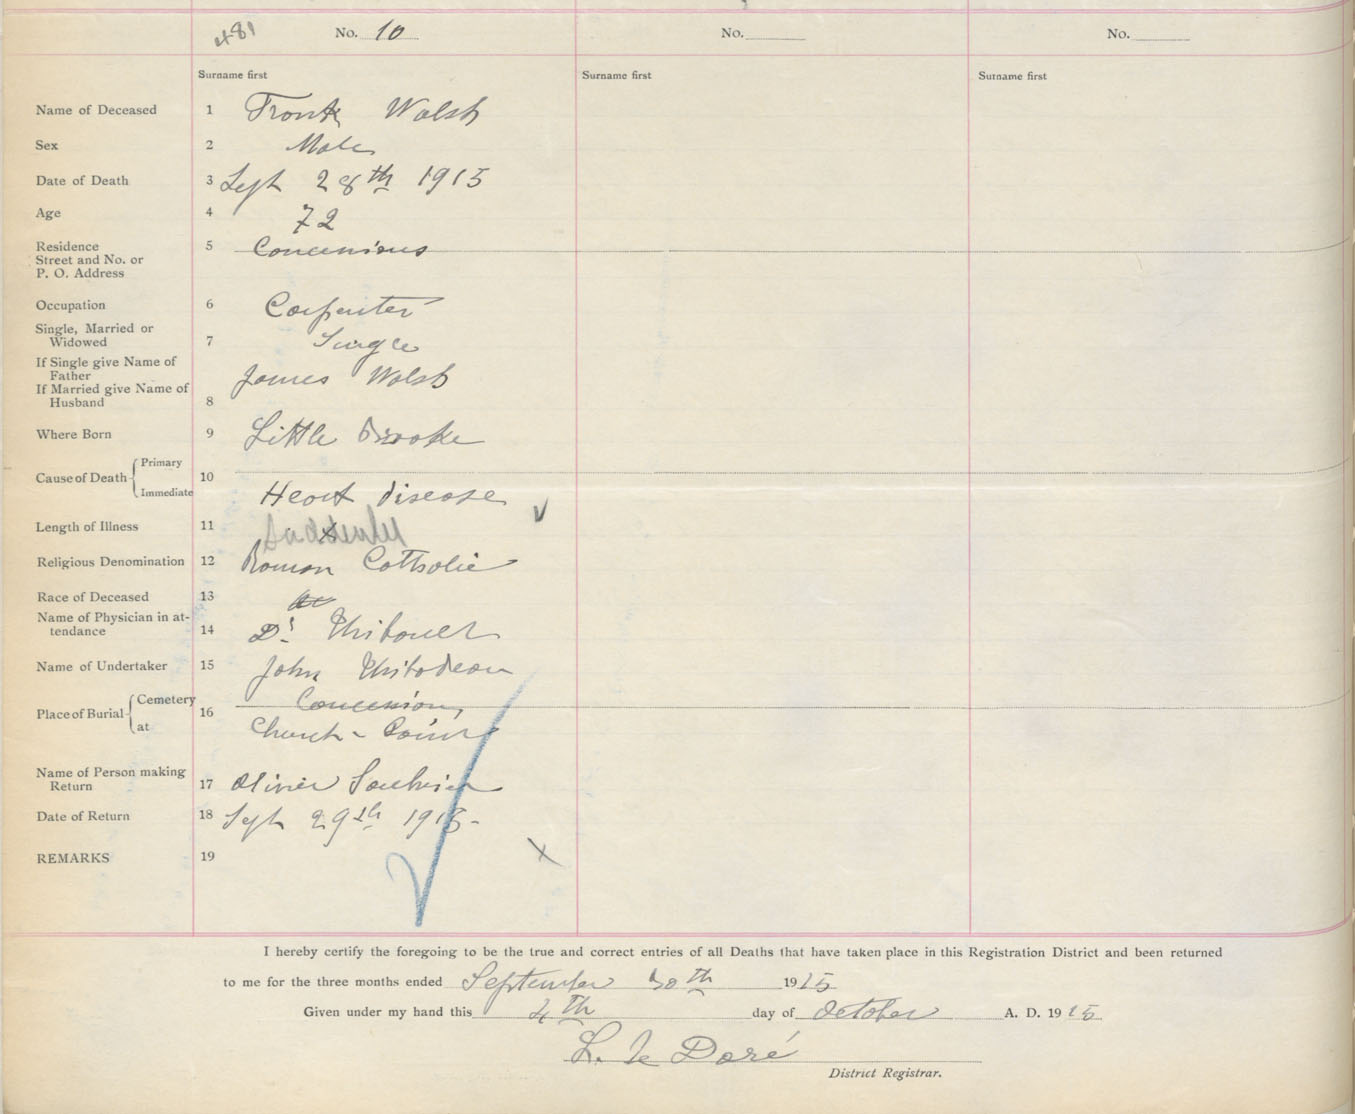 481 No. 10 No. No.
Surname first Surname first Surname first
Name of Deceased 1 Frank Walsh
Sex 2 Male
Date of Death 3 Sept 28th 1915
Age 4 72
Residence 5 Concessions
Street and No. or
P. O. Address
Occupation 6 Carpenter
Single, Married or
Widowed 7 Single
If Single give Name of
Father James Walsh
If Married give Name of
Husband 8
Where Born 9 Little Brooke
Cause of Death Primary 10
Immediate Heart disease
Length of Illness 11 Suddenley
Religious Denomination 12 Roman Catholic
Race of Deceased 13
Name of Physician in at-
tendance 14 Dr
Name of Undertaker 15 John Thibodeau
Place of Burial Cemetery 16 Concession,
at Church-Point
Name of Person making
Return 17 Olivier
Date of Return 18 Sept 29th 1915-
REMARKS 19
I hereby certify the foregoing to be the true and correct entries of all Deaths that have taken place in this Registration District and been returned
to me for the three months ended September 30th 1915
Given under my hand this 4th day of October A. D. 1915
L. le Doré
District Registrar.